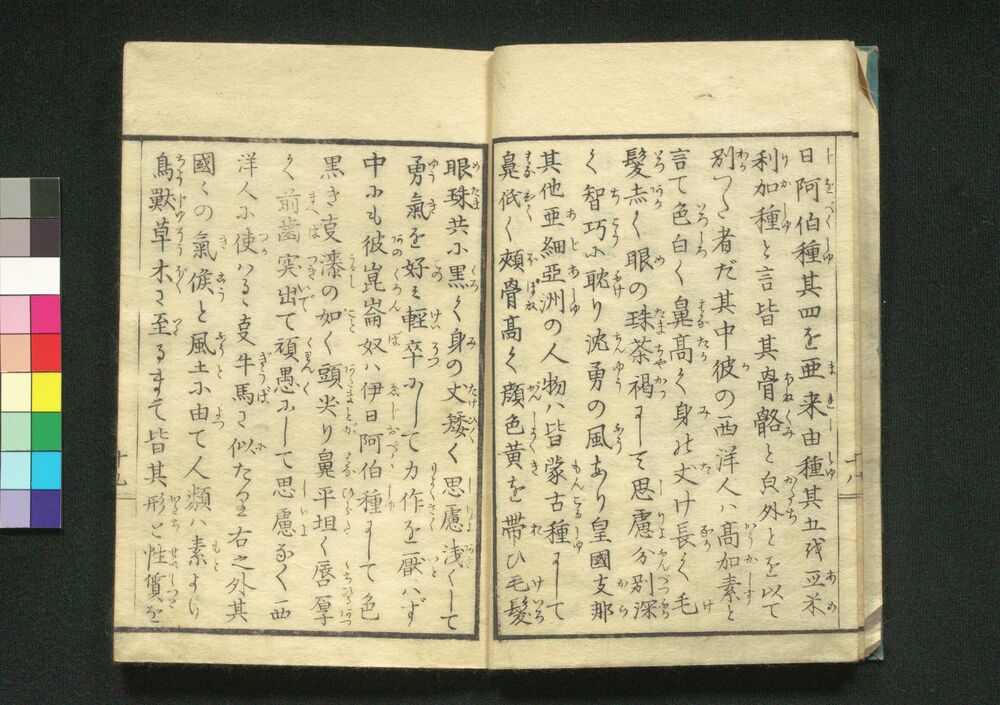 日阿伯種其四を亜来由種其五を亜米
利加種と言皆其骨骼と白外とを以て
別つた者だ其中彼の西洋人ハ高加素と
言て色白く鼻高く身の丈け長く毛
髪赤く眼の珠茶褐にして思慮分別深
く智巧に耽り沈勇の風あり皇國支那
其他亜細亜洲の人物ハ皆蒙古種にして
鼻低く頬骨高く顔色黄を帯ひ毛髪
眼珠共に黒く身の丈矮く思慮浅くして
勇氣を好ミ輕卒にして力作を厭ハず
中にも彼崑崙奴ハ伊日阿伯種にして色
黒き事漆の如く頭尖り鼻平坦く唇厚
く前歯突出て頑愚にして思慮なく西
洋人に使ハるゝ事牛馬に似たり右之外其
國々の氣候と風土に由て人類ハ素より
鳥獣草木に至るまて皆其形と性質を
十八
十九